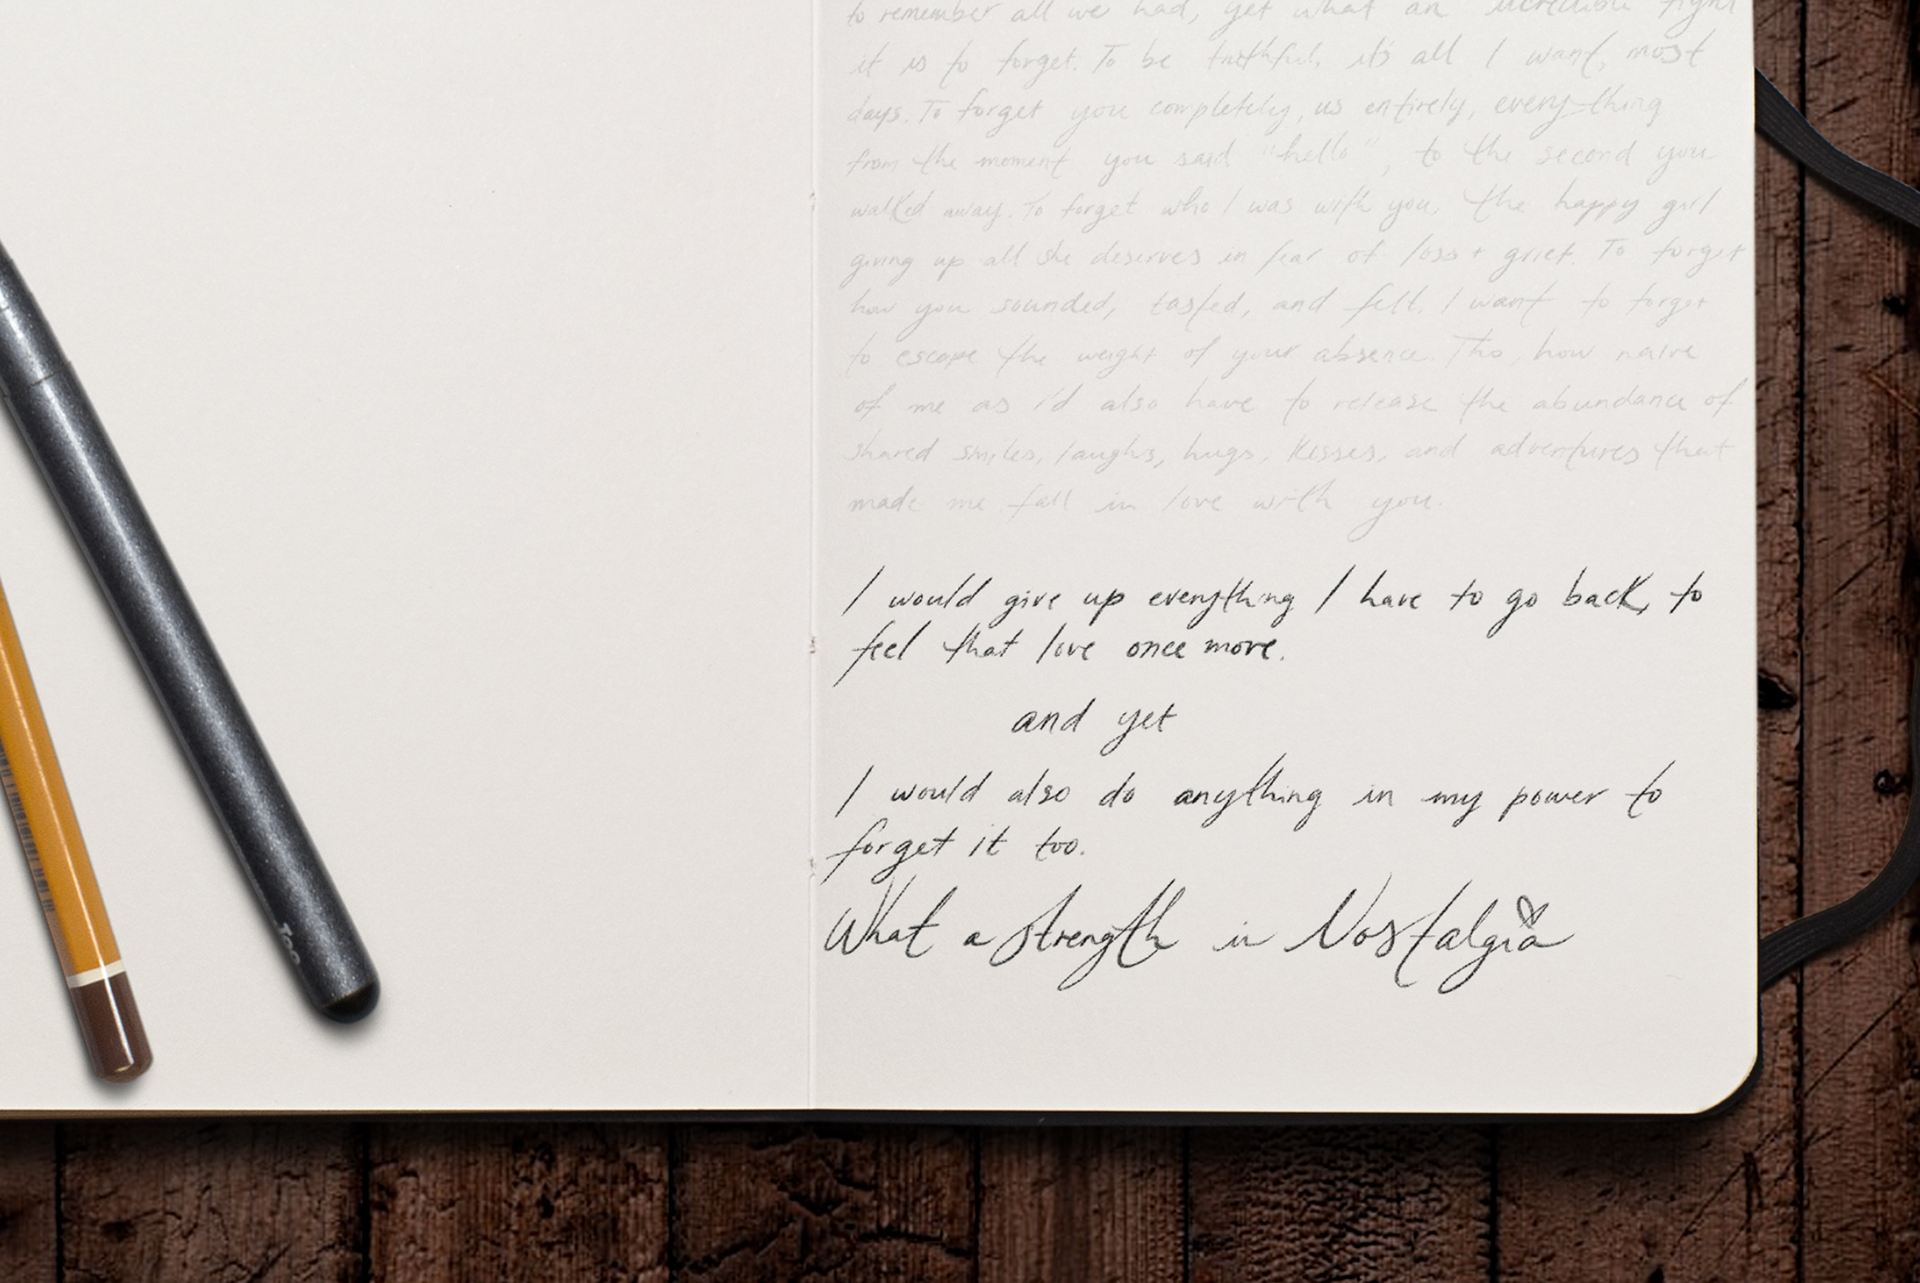 to remember all we had, yet what an incredible fight
it is to forget. To be truthful, it's all I want, most
days. To forget you completely, us entirely, everything
from the moment you said "hello", to the second you
walked away. To forget who I was with you, the happy girl
giving up all she deserves in fear of loss + grief. To forget
how you sounded, tasted, and felt. I want to forget
to escape the weight of your absence. Tho, how naive
of me as i'd also have to release the abundance of
shared smiles, laughs, hugs, kisses, and adventures that
made me fall in love with you.
I would give up everything I have to go back, to
feel that love once more.
and yet
I would also do anything in my power to
forget it too.
What a strength in Nostalgia